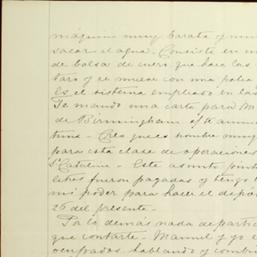 maquina muy barata y
sacar el agua. Consiste en
de bolsa de cuero que hace las
y se mueve con una
Es el sistema empleado en las
Te mando una carta para
de Birmingham
Creo que es hombre muy
para esta clase de operaciones
St Catalina - Este asunto
fueron pagadas y tengo
mi poder para hacer el
26 del presente.
Por lo demás nada de
que contarte - Manuel y yo
ocupados hablando y